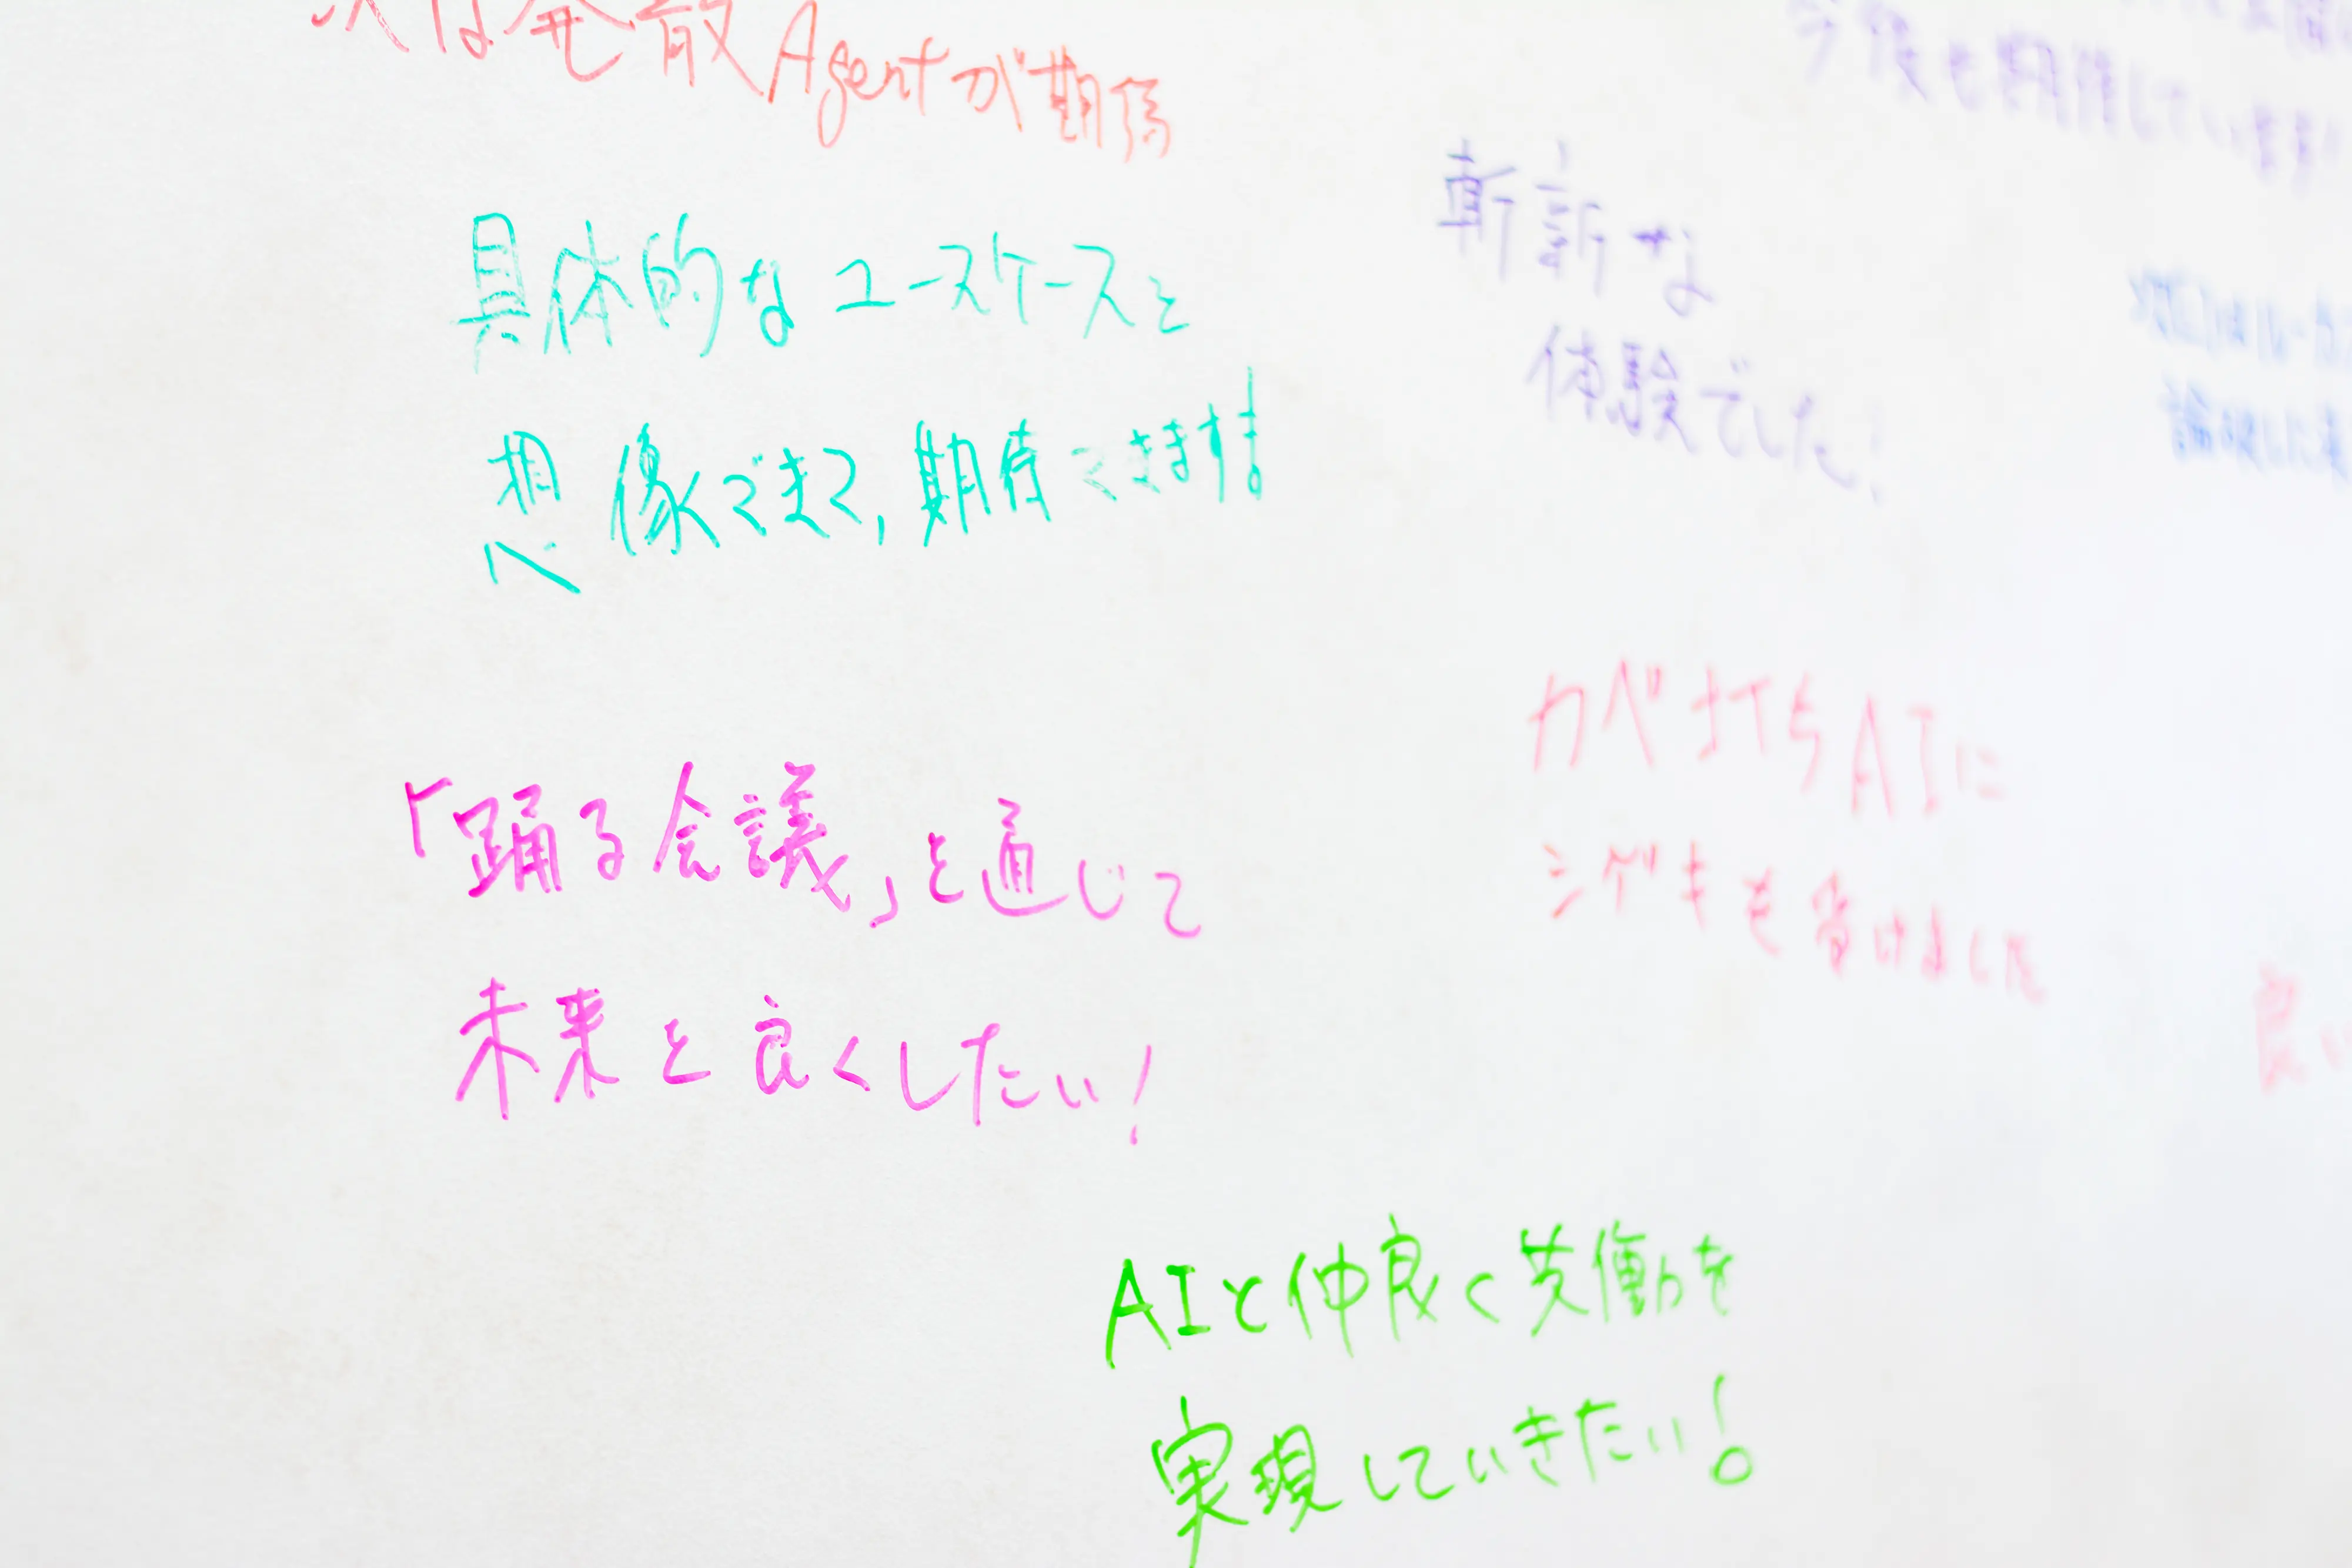 は発散Agentが期待
具体的なユースケースを
想像できて,期待できます!
「踊る会議」を通じて
未来を良くしたい!
AIと仲良く共働を
実現していきたい!
今後も期待しています
斬新な
体験でした!
カベ打ちAIに
シゲキを受けました
良い